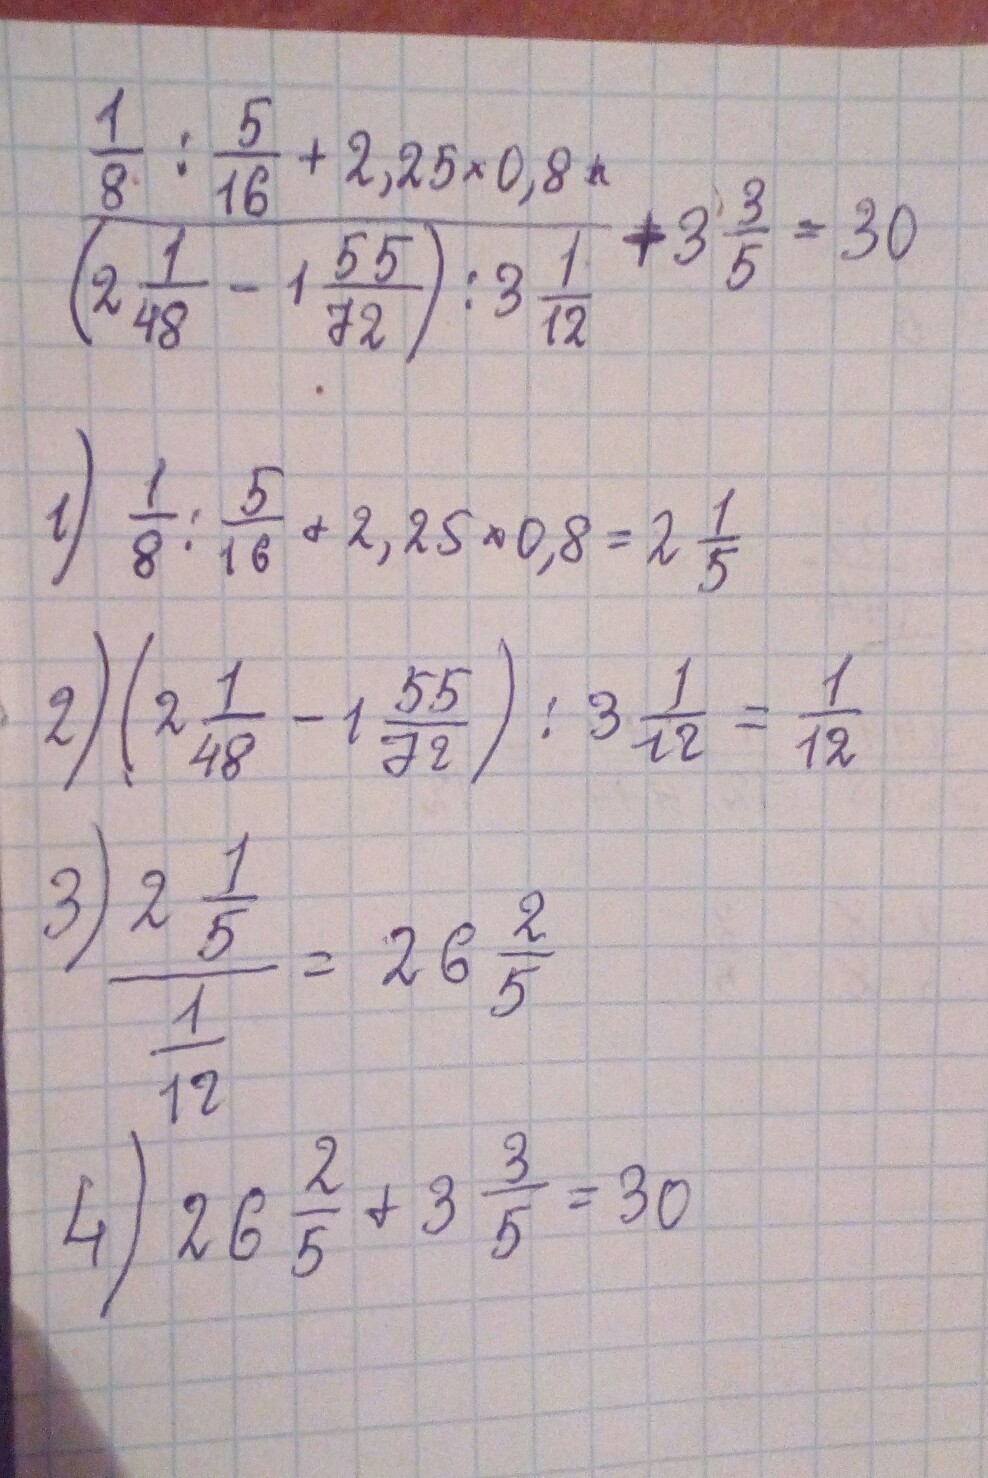 1/8 : 5/16 + 2,25 × 0,8
(2 1/48 - 1 55/72) : 3 1/12 + 3 3/5 = 30
1) 1/8 : 5/16 + 2,25 × 0,8 = 2 1/5
2) (2 1/48 - 1 55/72) : 3 1/12 = 1/12
3) 2 1/5 / 1/12 = 26 2/5
4) 26 2/5 + 3 3/5 = 30